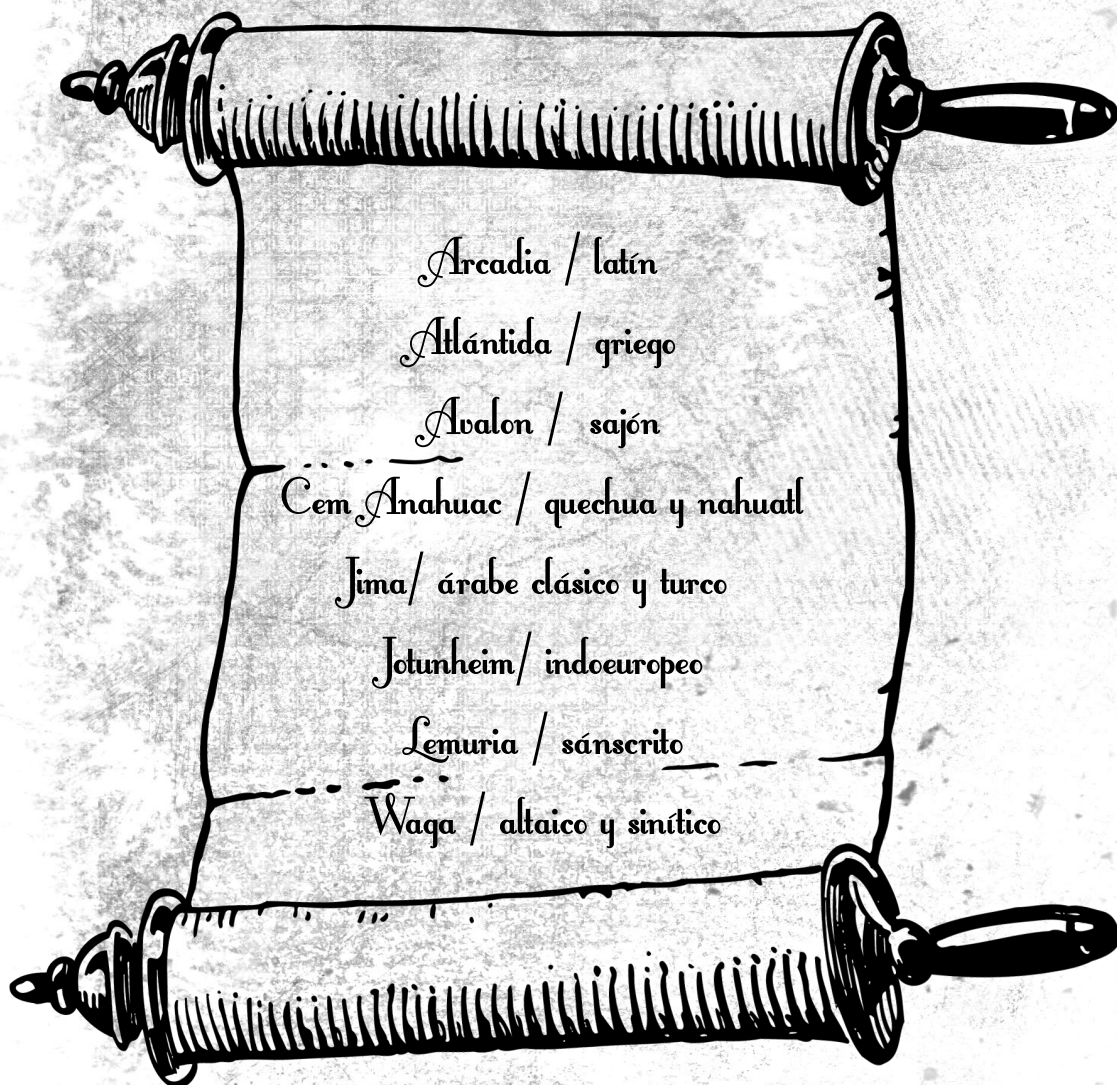 Arcadia / latín
Atlántida / griego
Avalon / sajón
Cem Anahuac / quechua y nahuatl
Jima/ árabe clásico y turco
Jotunheim/ indoeuropeo
Lemuria / sánscrito
Waga / altaico y sinítico